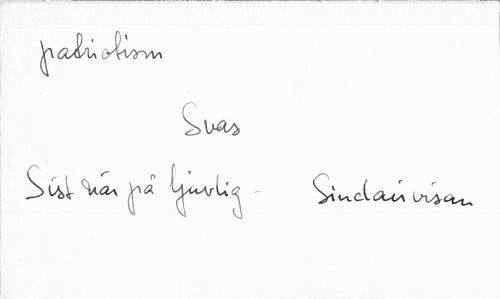 patriotism
Svas
Sist när på ljuvlig - Sinclairvisan